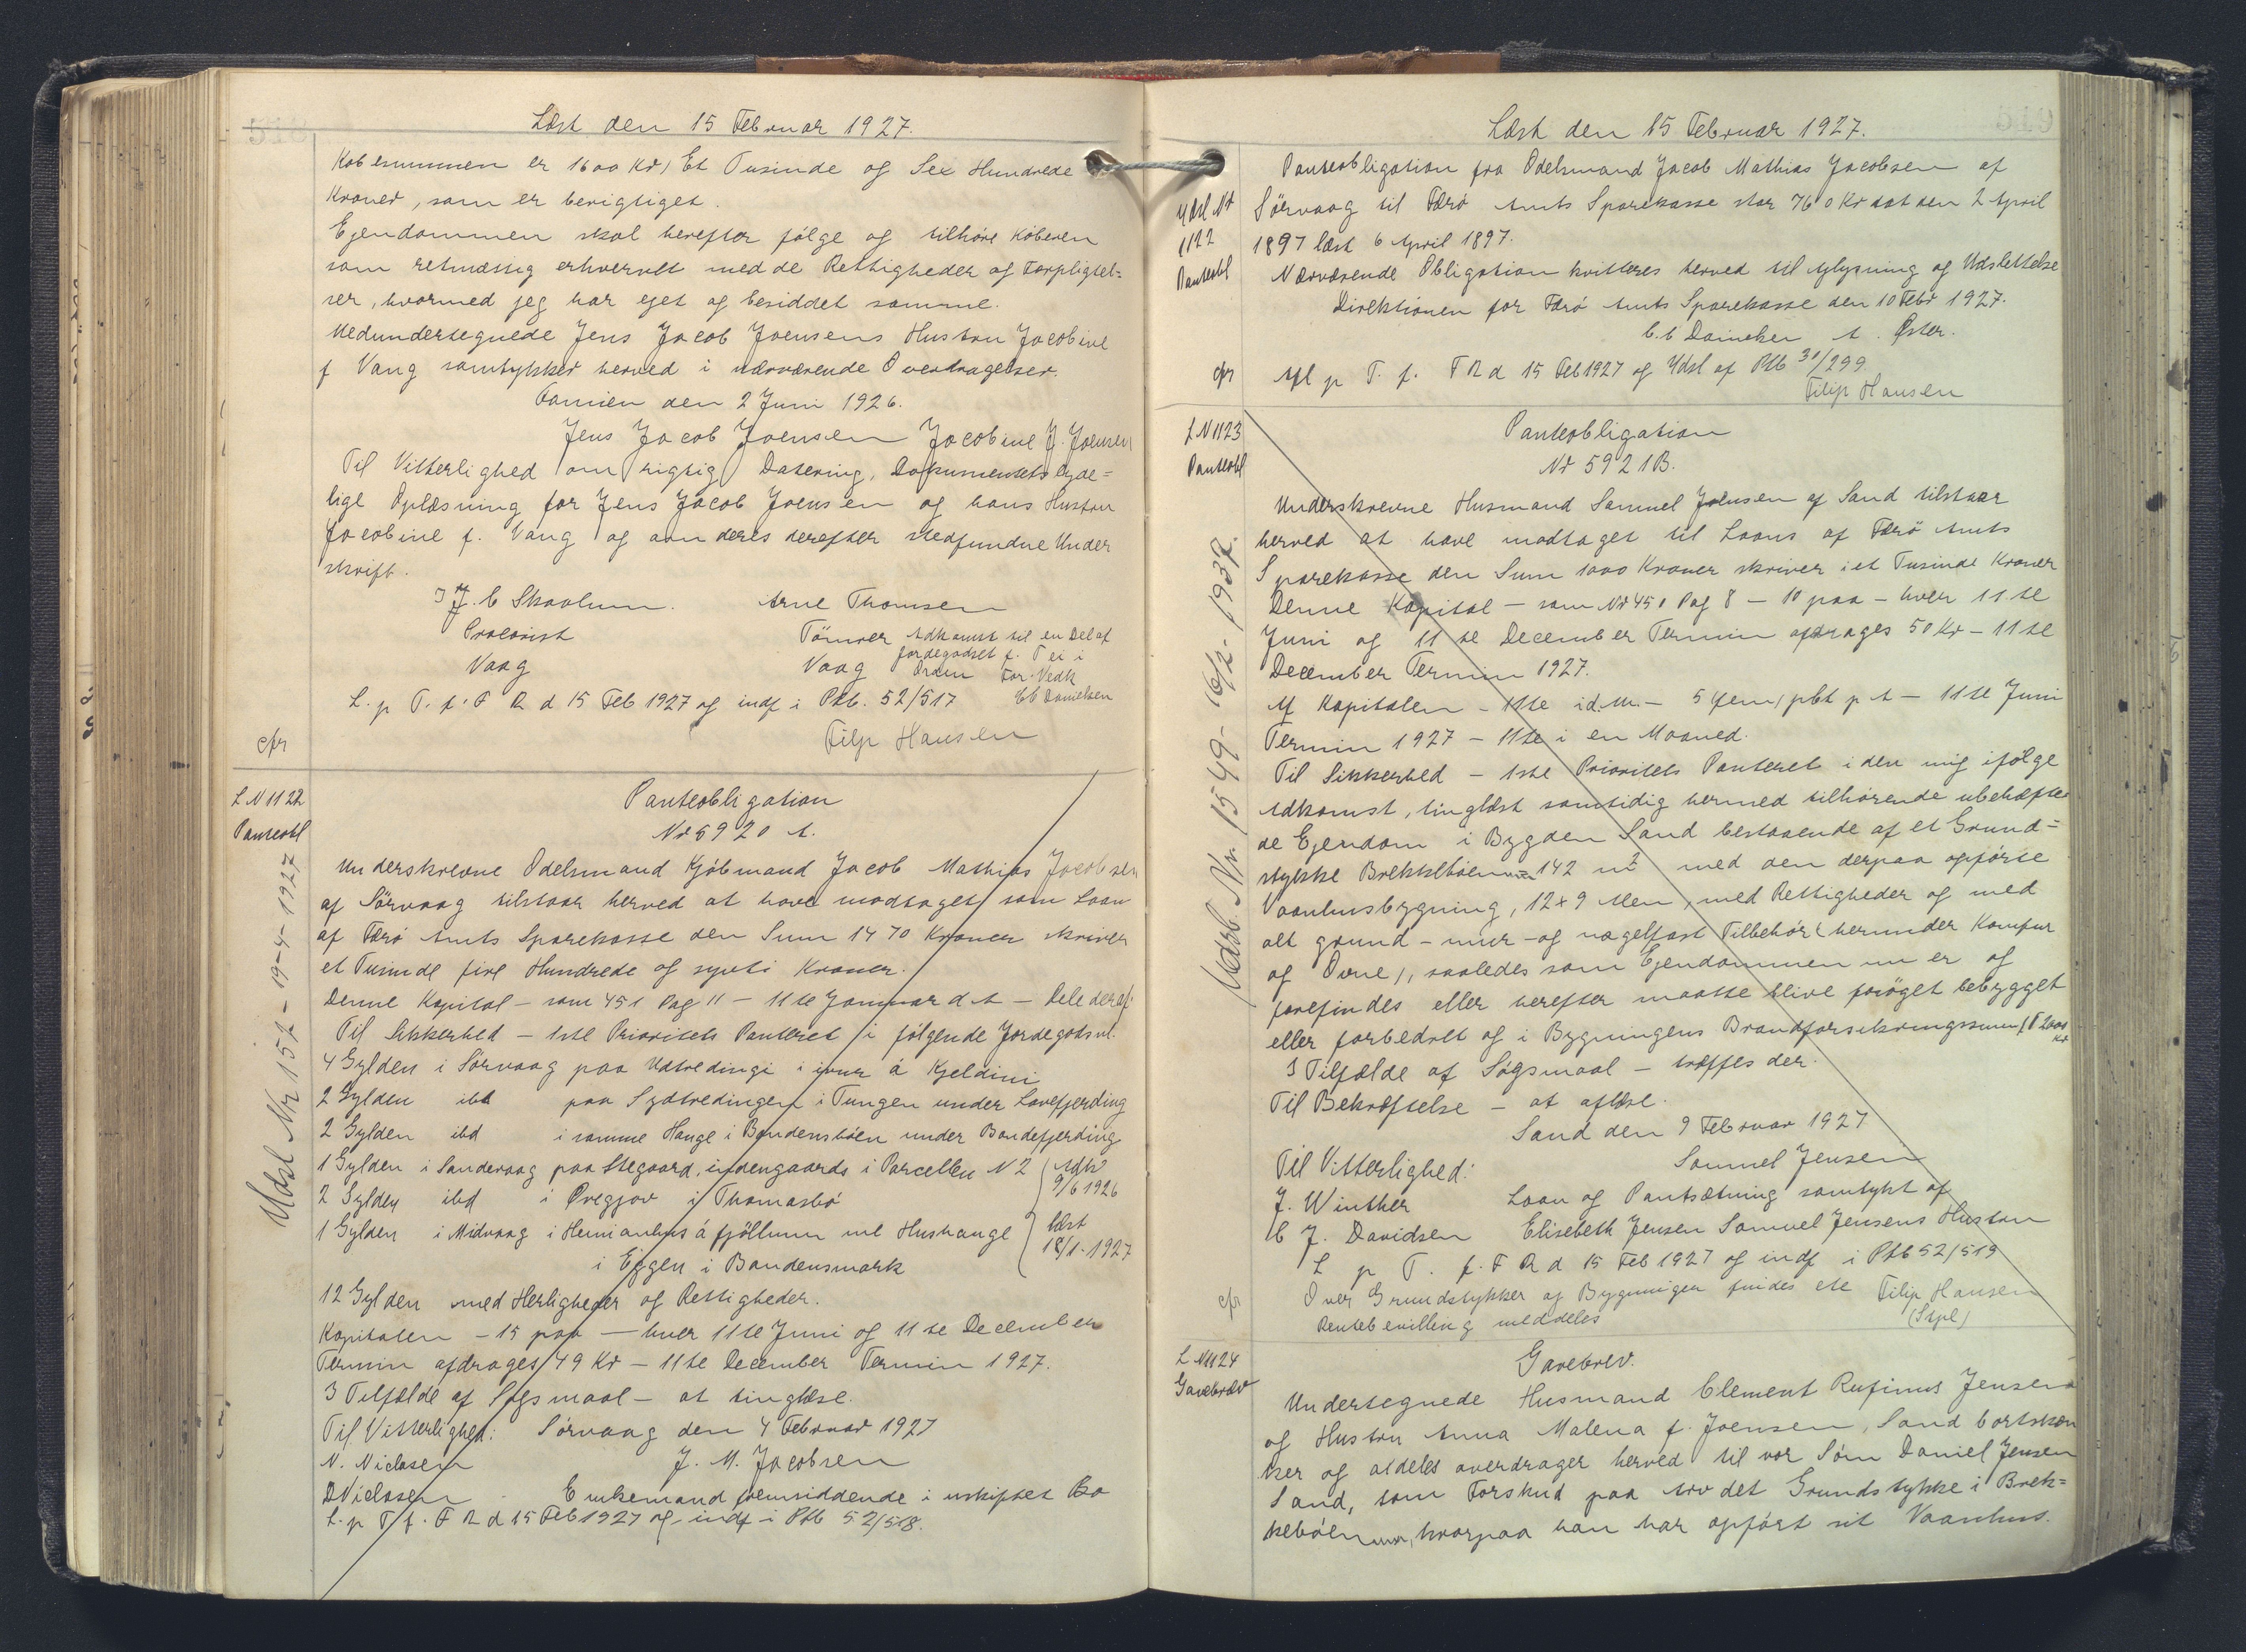 Læst den 15 Februar 1927.
Købesummen er 1600 Kr) Et Tusinde og Sex Hundrede
Kroner, som er berigtiget.
Ejendommen skal herefter følge og tilhøre Køberen
som retmæssig erhvervelt med de Rettigheder og Forpligtel-
ser, hvormed jeg har ejet og besiddet samme.
Medundertegnede Jens Jacob Joensens Hustru Jacobine
f Vang samtykker herved i nærværende Overdragelser.
Famien den 2 Juni 1926.
Jens Jacob Joensen Jacobine J. Joensen
Til Vitterlighed om rigtig Datering, Dokumentets tyde-
lige Oplæsning for Jens Jacob Joensen og hans Hustru
Jacobine f. Vang og om deres derefter stedfundne Under
skrift.
J. C Skaalum. Arne Thomsen
Procorist Tömrer Adkomst til en Del af
Jordegodset f. T ei i
Vaag Vaag Orden For. Vedk
L. p T. f. F R d 15 Feb 1927 og indf i Ptb. 52/517 CC Danielsen
cfr Filip Hansen
L N 1122
Panteobl
Udsl Nr 157 - 19-4-1927
Panteobligation
Nr 5920 A.
Underskrevne Odelsmand Kjöbmand Jacob Mathias Jacobsen
af Sörvaag tilstaar herved at have modtaget som Laan
af Færö Amts Sparekasse den Sum 1470 Kroner skriver
et Tusinde fire Hundrede og syvti Kroner.
Denne Kapital - som 451 Pag 11 - 11te Januar d A - Dele deraf
Til Sikkerhed - 1ste Prioritets Panteret i følgende Jordegods nl.
4 Gylden i Sörvaag paa Udtredingi i ivur á Kjeldini
2 Gylden ibd paa Sydtredingen i Tungen under Lavefjerding
2 Gylden ibd i samme Hauge i Bondensböen under Bondefjerding
1 Gylden i Sandevaag paa Stegaard, indengaards i Parcellen N 2 (Adk
2 Gylden ibd i Øregjov i Thomasbö 9/6 1926
1 Gylden i Midvaag i Heimanhus á fjöllum ml Hushauge } læst
i Eggen i Bondensmark 18/1-1927
12 Gylden med Herligheder og Rettigheder.
Kapitalen - 15 paa - hver 11te Juni og 11te December
Termin afdrages 49 Kr - 11te December Termin 1927.
I Tilfælde af Søgsmaal - at tinglæse.
Til Vitterlighed: Sörvaag den 4 Februar 1927
N. Niclasen J. M. Jacobsen
D Niclasen Enkemand hensiddende i uskiftet Bo
L. p T f. F R d 15 Feb 1927 og indf i Ptb 52/518.
Læst den 15 Februar 1927.
Udsl Nr
1122
Panteobl
Panteobligation fra Odelsmand Jacob Mathias Jacobsen af
Sörvaag til Færö Amts Sparekasse stor 760 Kr dat den 2 April
1897 læst 6 April 1897.
Nærværende Obligation kvitteres herved til Aflysning og Udslettelse
Direktionen for Færö Amts Sparekasse den 10 Febr 1927.
C. C Danielsen A. Øster.
cfr Afl p T. f. F R d 15 Feb 1927 og Udsl af Ptb 31/299
Filip Hansen
L N 1123
Panteobl
Udsl. Nr. 1549 - 16/2 - 1937.
Panteobligation
Nr 5921 B.
Underskrevne Husmand Samuel Joensen af Sand tilstaar
herved at have modtaget til Laans af Færö Amts
Sparekasse den Sum 1000 Kroner skriver i et Tusinde Kroner
Denne Kapital - som Nr 451 Pag 8 - 10 paa - hver 11te
Juni og 11te December Termin afdrages 50 Kr - 11te
December Termin 1927.
Af Kapitalen - 11te i d. M. - 5 (fem) pCt p A - 11te Juni
Termin 1927 - 11te i en Maaned.
Til Sikkerhed - 1ste Prioritets Panteret i den mig ifölge
Adkomst, tinglæst samtidig hermed tilhørende ubehæfte-
de Ejendom i Bygden Sand bestaaende af et Grund-
stykke Brekkeböen 142 m² med den derpaa opførte
Vaanhusbygning, 12 x 9 Alen, med Rettigheder og med
alt grund- mur- og nagelfast Tilbehör (herunder Komfur
og Ovne), saaledes som Ejendommen nu er og
forefindes eller herefter maatte blive forøget bebygget
eller forbedret og i Bygningens Brandforsikringssum (P 2000
Kr
I Tilfælde af Søgsmaal - træffes der.
Til Bekræftelse - at aflæse.
Sand den 9 Februar 1927
Til Vitterlighed: Samuel Jensen
J. Winther Laan og Pantsætning samtykt af
C J. Davidsen Elisebeth Jensen Samuel Jensens Hustru
L p T. f. F R d 15 Feb 1927 og indf i Ptb 52/519
cfr Over Grundstykker og Bygningen findes ete Filip Hansen
Rentebevilling meddeles (Stpl)
L N 1124
Gavebrev
Gavebrev.
Undertegnede Husmand Clement Rufinus Jensen
og Hustru Anna Malena f. Joensen, Sand bortskæn
ker og aldeles overdrager herved til vor Søn Daniel Jensen
Sand, som Forskud paa Arv det Grundstykke i Brek-
keböen, hvorpaa han har opført sit Vaanhus.